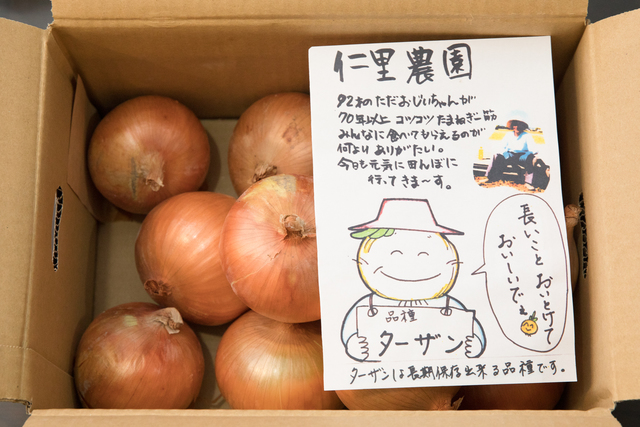 仁里農園
92才のただおじいちゃんが
70年以上 コツコツ たまねぎ一筋
みんなに食べてもらえるのが
何より ありがたい。
今日も元気に田んぼに
行ってきま〜す。
長いこと おいとけて
おいしいでぇ
品種
ターザン
ターザンは長期保存出来る品種です。